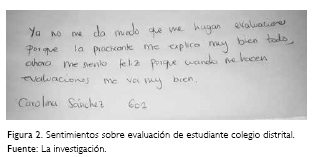 Ya no me da miedo que me hagan evaluaciones
porque la practicante me explica muy bien todo,
ahora me siento feliz porque cuando me hacen
evaluaciones me va muy bien.
Carolina Sánchez 602
Figura 2. Sentimientos sobre evaluación de estudiante colegio distrital.
Fuente: La investigación.